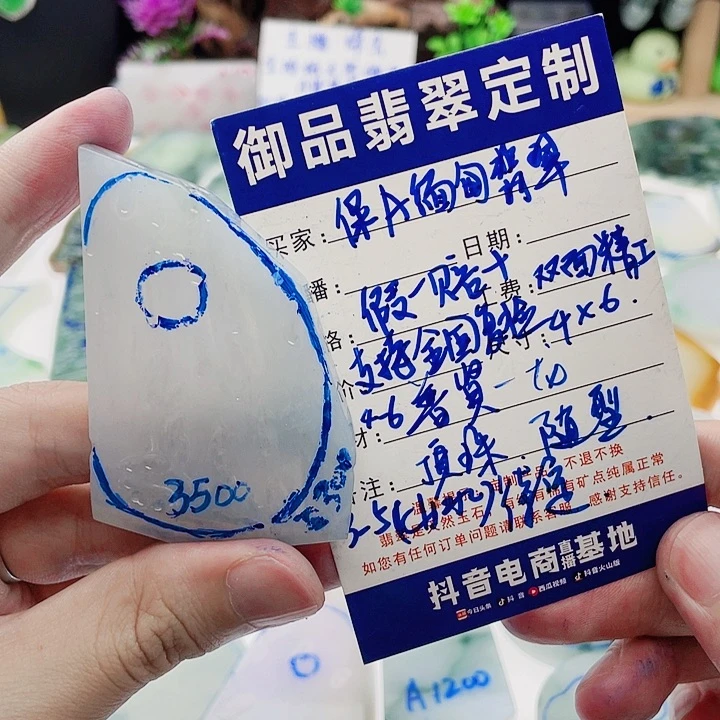 御品翡翠定制
买家：保A缅甸翡翠
日期：
播：假一赔十
工费：双面精工
格：支持全国复检
尺寸：4×6.
价
4-6普贤一切
材：
顶珠.随型.
注：
不退不换
翡翠是天然玉石
有矿点纯属正常
如您有任何订单问题请联系客服，感谢支持信任。
抖音电商直播基地
今日头条 抖音 西瓜视频 抖音火山版
3500
A1200